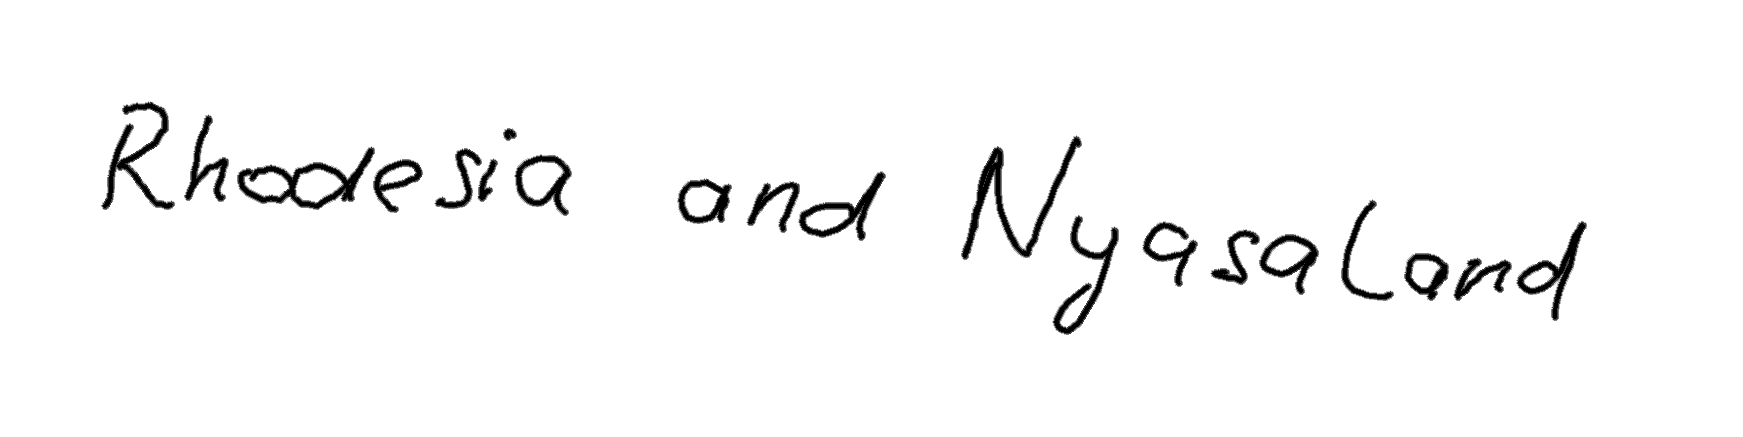 Rhodesia and Nyasaland